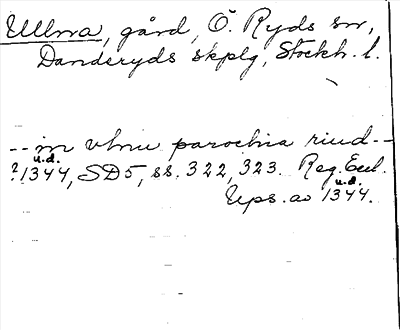 Ullna, gård, Ö. Ryds sn,
Danderyds skplg, Stockh. l.
-- in vlnu parochia riud --
u.d.
? 1344, SD5, ss. 322, 323. Reg. Eccl.
u.d.
Ups. av 1344.